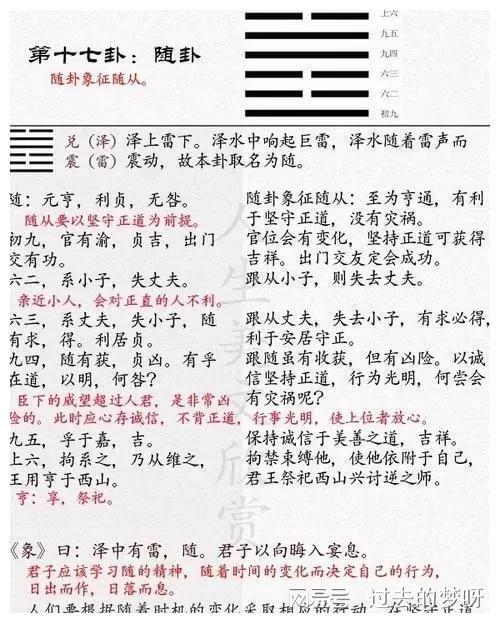 第十七卦：随卦
随卦象征随从。
上六
九五
九四
六三
六二
初九
兑（泽）泽上雷下。泽水中响起巨雷，泽水随着雷声而
震（雷）震动，故本卦取名为随。
随：元亨，利贞，无咎。
随从要以坚守正道为前提。
初九，官有渝，贞吉，出门
交有功。
六二，系小子，失丈夫。
亲近小人，会对正直的人不利。
六三，系丈夫，失小子，随
有求，得。利居贞。
九四，随有获，贞凶。有孚
在道，以明，何咎？
臣下的威望超过人君，是非常凶
险的。此时应心存诚信，不背正道，行事光明，使上位者放心。
九五，孚于嘉，吉。
上六，拘系之，乃从维之，
王用亨于西山。
亨：享，祭祀。
随卦象征随从：至为亨通，有利
于坚守正道，没有灾祸。
官位会有变化，坚持正道可获得
吉祥。出门交友定会成功。
跟从小子，则失去丈夫。
跟从丈夫，失去小子，有求必得，
利于安居守正。
跟随虽有收获，但有凶险。以诚
信坚持正道，行为光明，何尝会
有灾祸呢？
保持诚信于美善之道，吉祥。
拘禁束缚他，使他依附于自己，
君王祭祀西山兴讨逆之师。
《象》曰：泽中有雷，随。君子以向晦入宴息。
君子应该学习随的精神，随着时间的变化而决定自己的行为，
日出而作，日落而息。
人们要根据随着时机的变化采取相应的行动，在坚守正道
人生美文欣赏
搜狐号@过去的梦呀